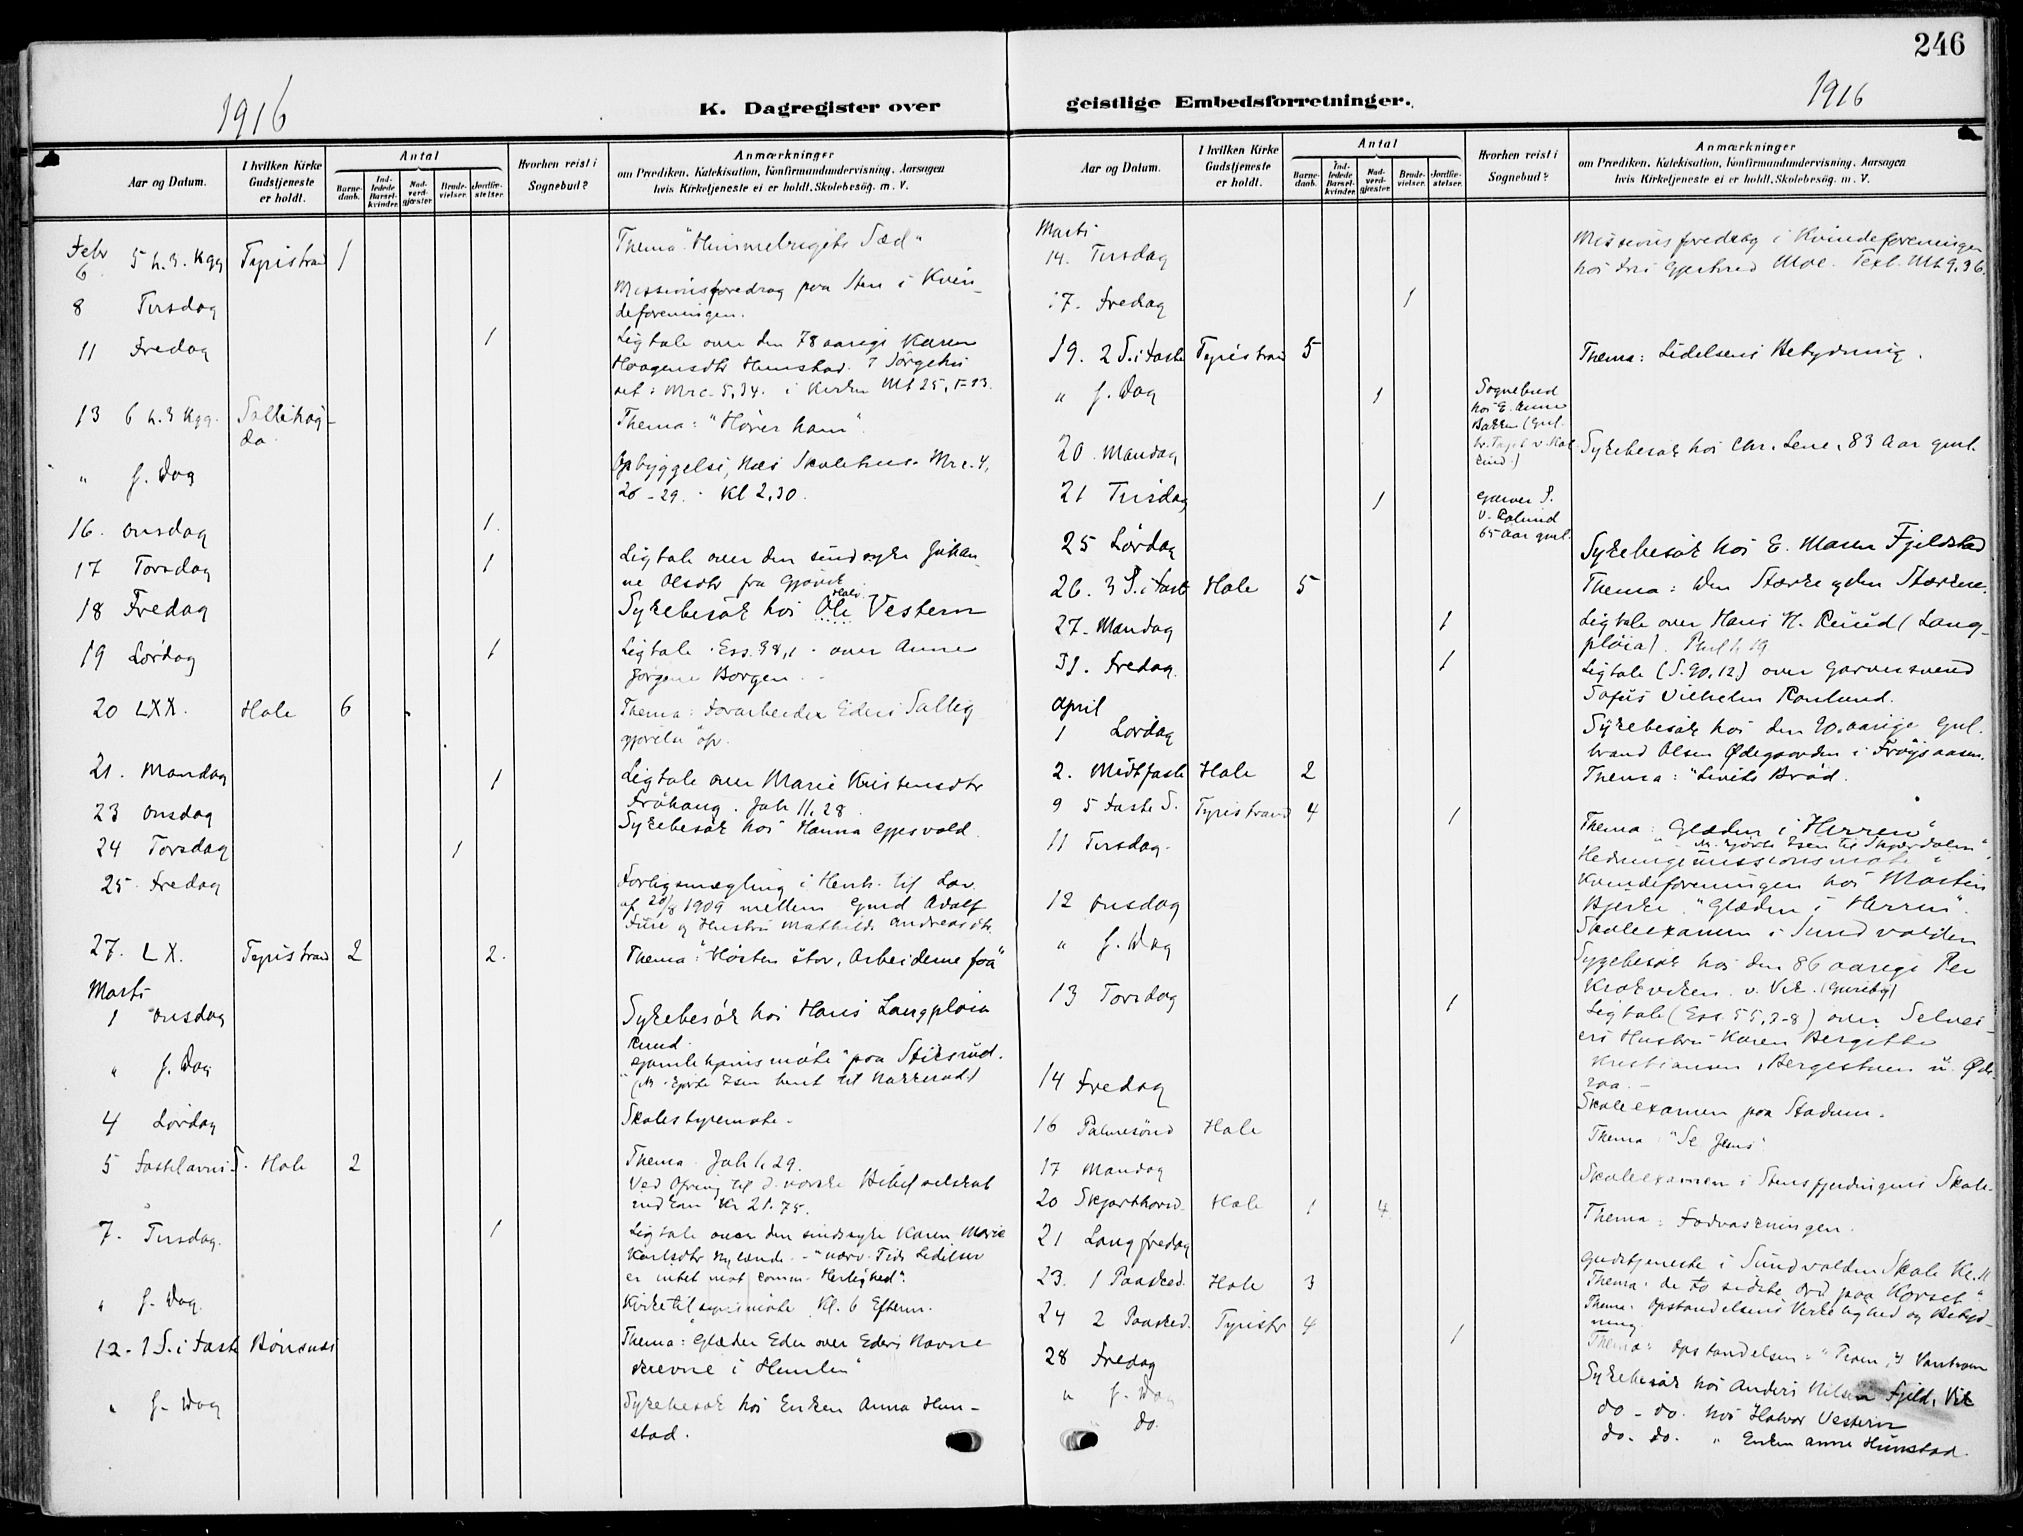 246
1916
K. Dagregister over
geistlige Embedsforretninger.
1916
Aar og Datum.
I hvilken Kirke Gudstjeneste er holdt.
Antal
Barnedaab.
Indledede Barselkvinder.
Nadverdgjæster.
Brudevielser.
Jordfæstelser.
Hvorhen reist i Sognebud?
Anmærkninger
om Prædiken, Katekisation, Konfirmandundervisning, Aarsagen
hvis Kirketjeneste ei er holdt, Skolebesøg. m. V.
Febr
6 5 h. 3. Kgg Tyristrand 1 Thema "Himmelrigets Sæd"
8 Tirsdag Missionsforedrag paa Sten i Kvin-
deforeningen.
11 Fredag 1 Ligtale over den 78 aarige Karen
Haagensdtr Hunstad. I Sørgehu
set: Mrc. 5,34. i Kirken Mt 25, 1-13.
13 6 h. 3 Kgg. Sollihøg-
da Thema: "Hører ham"
" S. Dag Opbyggelse, Næs Skolehus. Mrc. 4,
26-29. Kl 2.30.
16. Onsdag 1.
17 Torsdag 1 Ligtale over den sindssyke Johan-
ne Olsdtr fra Gjøvik
18 Fredag Sykebesøk hos Ole Vestern
Halv.
19 Lørdag 1 Ligtale. Ess. 38,1. over Anne
Jørgine Borgen.
20 LXX. Hole 6 Thema: Forarbeider Eders Salig
gjørelse" op.
21. Mandag 1 Ligtale over Marie Kristensdtr
Frøhaug. Joh 11, 28
23 Onsdag Sykebesøk hos Hanna Gjesvold.
24 Torsdag 1
25. Fredag Forligsmægling i Henh. til Lov
af 20/8 1909 mellem Gmd Adolf
Fure og Hustru Mathilde Andreasdtr
27. LX. Tyristrand 2 2. Thema: "Høsten stor, Arbeiderne faa"
Marts
1 Onsdag Sykebesøk hos Hans Langpløia
Ruud.
" S. Dag "Gamlehjemsmøte" paa Stiksrud.
4 Lørdag Skolestyremøte.
5 Fastelavns S. Hole 2 Thema. Joh 1. 29.
Ved Ofring til d. norske Bibelselskab
indkom Kr 21.75.
7. Tirsdag. 1 Ligtale over den sindssyke Karen Marie
Karlsdtr Nylænde. - "nærv. Tids Lidelser
er intet mot komm. Herlighed".
" S. Dag. Kirketilsynsmøte Kl. 6 Efterm.
12. 1 S. i Fast Bønsnes Thema: "Glæder Eder over Eders Navne
skrevne i Himlen"
" S. Dag Sykebesøk hos Enken Anna Hun-
stad.
Aar og Datum.
I hvilken Kirke Gudstjeneste er holdt.
Antal
Barnedaab.
Indledede Barselkvinder.
Nadverdgjæster.
Brudevielser.
Jordfæstelser.
Hvorhen reist i Sognebud?
Anmærkninger
om Prædiken, Katekisation, Konfirmandundervisning, Aarsagen
hvis Kirketjeneste ei er holdt, Skolebesøg. m. V.
Marts
14. Tirsdag Missionsforedrag i Kvindeforeningen
hos Frk Gjertrud Moe. Text. Mt 9.36.
17. Fredag 1
19. 2 S. i Faste Tyristrand 5 Thema: Lidelsens Betydning.
" S. Dag 1 Sognebud
hos E. Anne
Bakken
20. Mandag Sykebesøk hos Chr. Lene, 83 Aar gml.
21 Tirsdag 1 Garver S.
V. Rolund
65 Aar gml.
25 Lørdag Sykebesøk hos E. Maren Fjeldstad
26. 3 S. i Fast Hole 5 Thema: Den Stærke og den Stærkere.
27. Mandag 1 Ligtale over Hans H. Ruud (Lang-
pløia).
31. Fredag. 1 Ligtale (S. 90,12) over Garversvend
Sofus Vilhelm Rolund.
April
1 Lørdag Sykebesøk hos den 90. aarige Gul-
brand Olsen Ødegaarden i Frøysaasen.
2. Midtfaste Hole 2 Thema: "Livets Brød.
9 5 Faste S. Tyristrand 4 1 Thema: "Glæden i Herren"
11 Tirsdag. Hedningemissionsmøte i
Kvindeforeningen hos Martin
Bjerke. "Glæden i Herren".
12 Onsdag Skoleexamen i Sundvolden
" S. Dag Sygebesøk hos den 86 aarige Per
Krokviken v. Vik.
13 Torsdag 1 Ligtale (Ess. 55, 7-8) over Selvei-
ers Hustru Karen Bergitte
Kristiansen, Bergestuen u. Øde-
raa.
14 Fredag Skoleexamen paa Stadum.
16 Palmesønd Hole Thema: "Se Jesus"
17 Mandag Skoleexamen i Stensfjerdingens Skole.
20 Skjærthorsd. Hole 1 4 Thema: Fodvaskningen.
21 Langfredag Gudstjeneste i Sundvolden Skole Kl. 11
Thema: de to sidste Ord paa Korset".
23. 1 Paasked. Hole 3 Thema: Opstandelsens Virkelighed og Betyd-
ning
24 2 Paasked. Tyristr 4 1 Thema: Opstandelsen:
28 Fredag Sykebesøk hos Anders Nilsen Fjeld, Vik
" S. Dag do - do. hos Halvor Vestern
" do. do. do. " Enken Anne Hunstad.